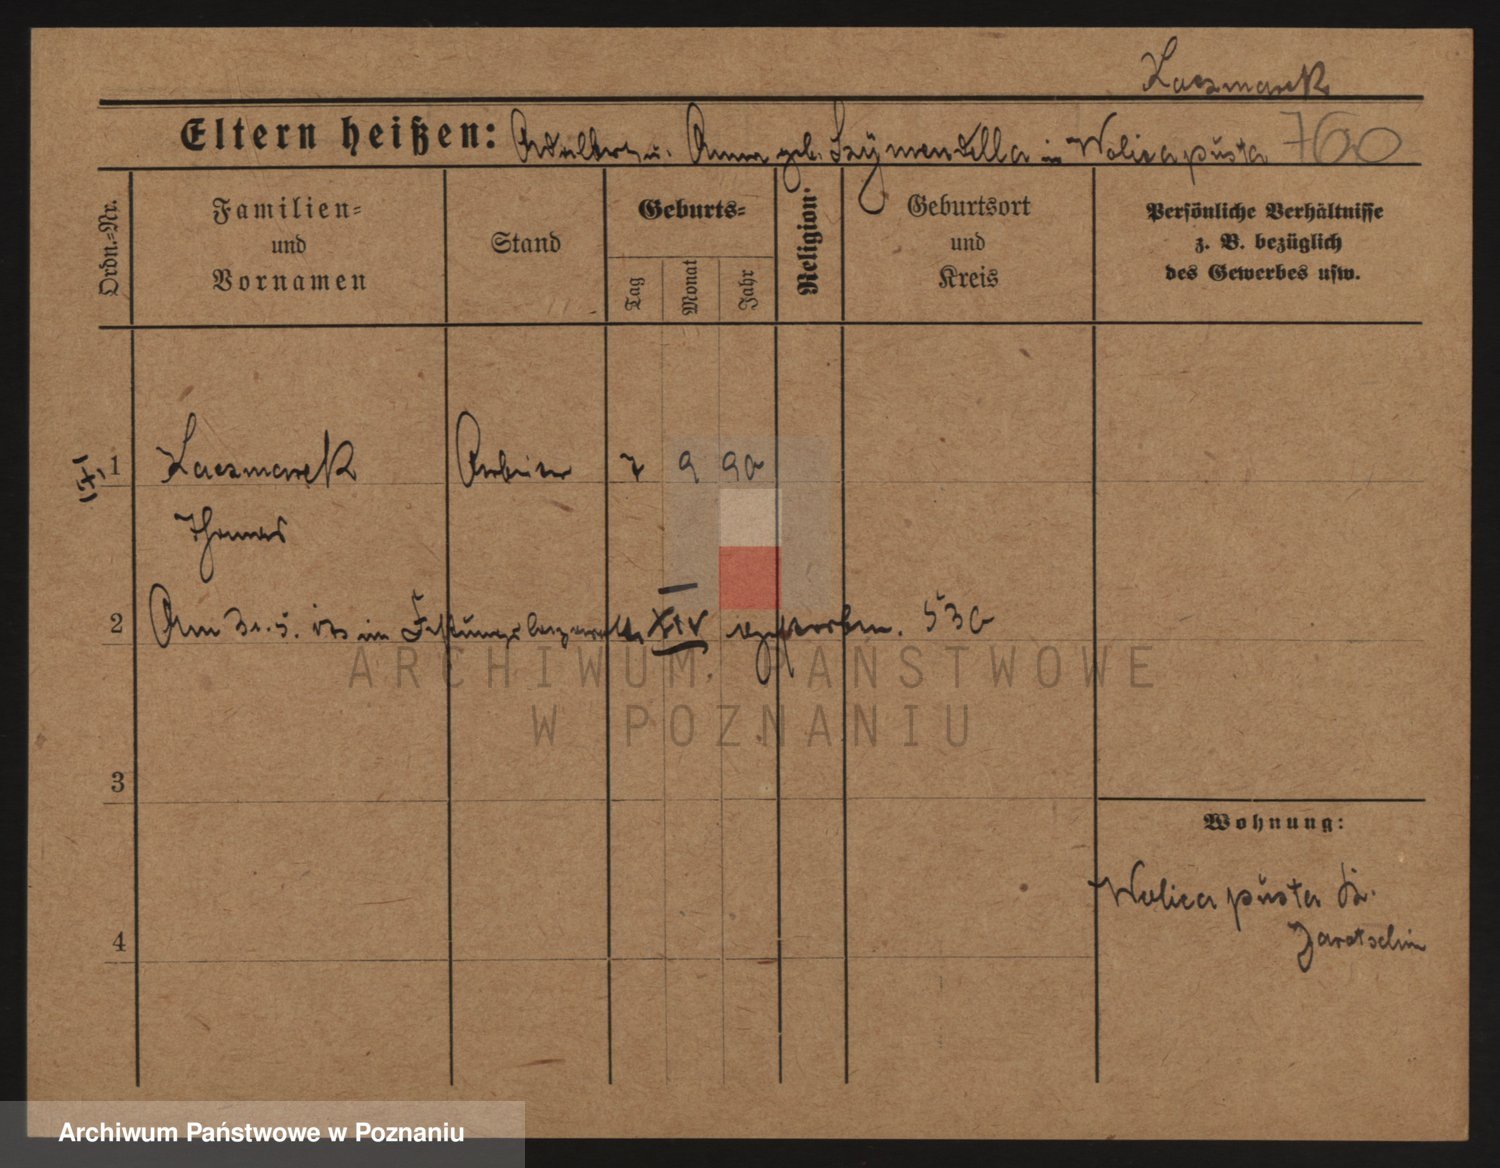 Kaczmarek
Eltern heißen: Adalbert u. Anna geb. Szymendilla in Wolica pusta 760
Ordn.=Nr.
Familien=
und
Vornamen
Stand
Geburts=
Tag
Monat
Jahr
Religion.
Geburtsort
und
Kreis
Persönliche Verhältnisse
z. B. bezüglich
des Gewerbes usw.
1 Kaczmarek Arbeiter 7 9 90
Thomas
2 Am 31.5. im Festungslazarett XIV verstorben. 530
ARCHIWUM PAŃSTWOWE
W POZNANIU
3
Wohnung:
Wolica pusta Kr.
Jarotschin
4
Archiwum Państwowe w Poznaniu